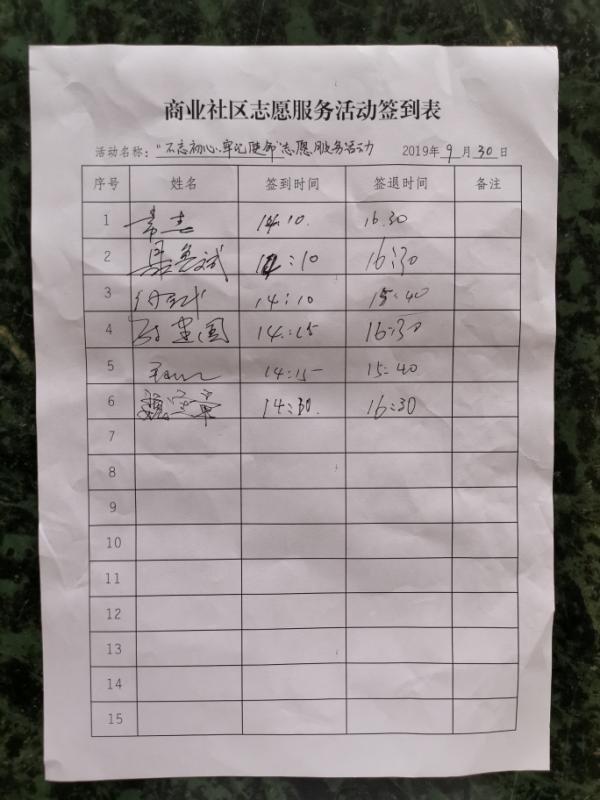 商业社区志愿服务活动签到表
活动名称："不忘初心、牢记使命"志愿服务活动 2019年9月30日
序号 姓名 签到时间 签退时间 备注
1 14:10. 16.30
2 14:10 16:30
3 14:10 15:40
4 14:15 16:30
5 14:15 15:40
6 14:30. 16:30
7
8
9
10
11
12
13
14
15